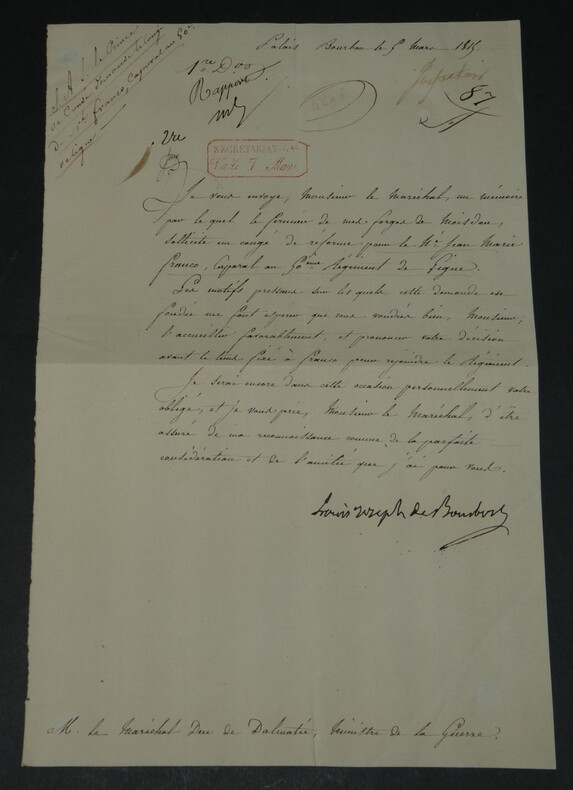 S. A. S. le Prince
de Condé demande le congé
du Sr. franco, Caporal au 50e.
de ligne
Palais Bourbon le 5 Mars 1815.
1re Don
Rapport
87
SECRETARIAT GAL
Je vous envoye, Monsieur le Maréchal, un mémoire
par le quel le fermier de mes forges de Moisdon,
sollicite un congé de réforme pour le Né. Jean Marie
franco, Caporal au 50ème Régiment de Ligne.
Les motifs pressans sur les quels cette demande est
fondée me font espérer que vous voudrez bien, Monsieur,
l'accueillir favorablement, et prononcer votre décision
avant le tems fixé à franco pour rejoindre le Régiment.
Je serai encore dans cette occasion personnellement votre
obligé, et je vous prie, Monsieur le Maréchal, d'être
assuré de ma reconnoissance comme de la parfaite
considération et de l'amitié que j'ai pour vous.
Louis Joseph de Bourbon
M. le Maréchal Duc de Dalmatie, Ministre de la Guerre.